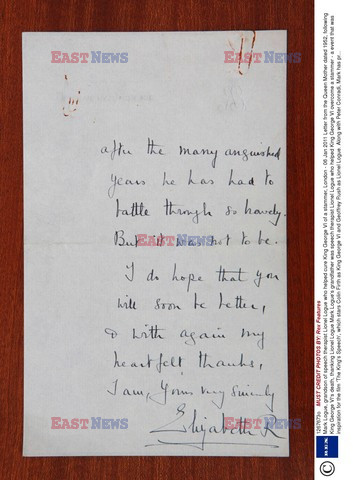 EASTNEWS
EASTNEWS
after the many anguished
years he has had to
battle through so bravely.
But it was not to be.
I do hope that you
will soon be better,
& with again my
heartfelt thanks,
I am, Yours very sincerely
Elizabeth R
EASTNEWS
EASTNEWS
EASTNEWS
EASTNEWS
1267673o MUST CREDIT PHOTOS BY: Rex Features
Mark Logue, grandson of speech therapist Lionel Logue who helped cure King George VI of a stammer, London - 06 Jan 2011 Letter from the Queen Mother dated 1952, following
King George VI's death, thanking Lionel Logue Mark Logue's grandfather was speech therapist Lionel Logue who helped King George VI overcome a stammer - a event that was
inspiration for the film 'The King's Speech', which stars Colin Firth as King George VI and Geoffrey Rush as Lionel Logue. Along with Peter Conradi, Mark has pr...
rex
©